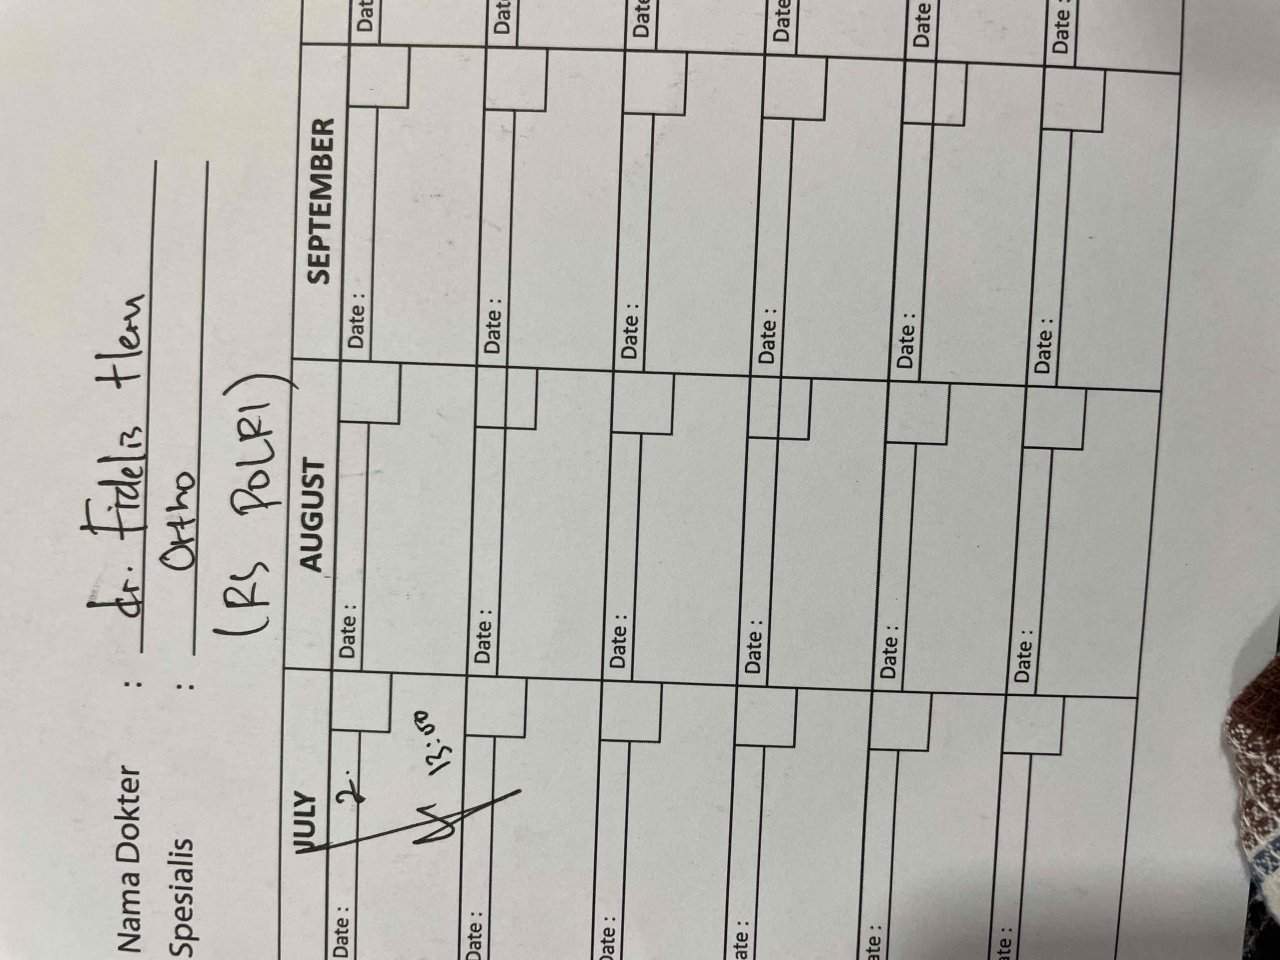 Nama Dokter : dr. Fidelis Heru
Spesialis : Ortho
(RS POLRI)
JULY AUGUST SEPTEMBER
Date : 2. Date : Date : Dat
13:00
Date : Date : Date : Date
Date : Date : Date : Date
ate : Date : Date : Date
ate : Date : Date : Date
te : Date : Date : Date :